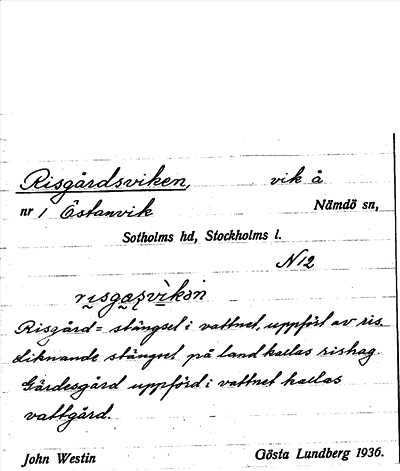 Risgårdsviken, vik å
nr 1 Östanvik Nämdö sn,
Sotholms hd, Stockholms l.
N12
Risgård = stängsel i vattnet, uppfört av ris.
Liknande stängsel på land kallas rishag.
Gärdesgård uppförd i vattnet kallas
vattgård.
John Westin Gösta Lundberg 1936.